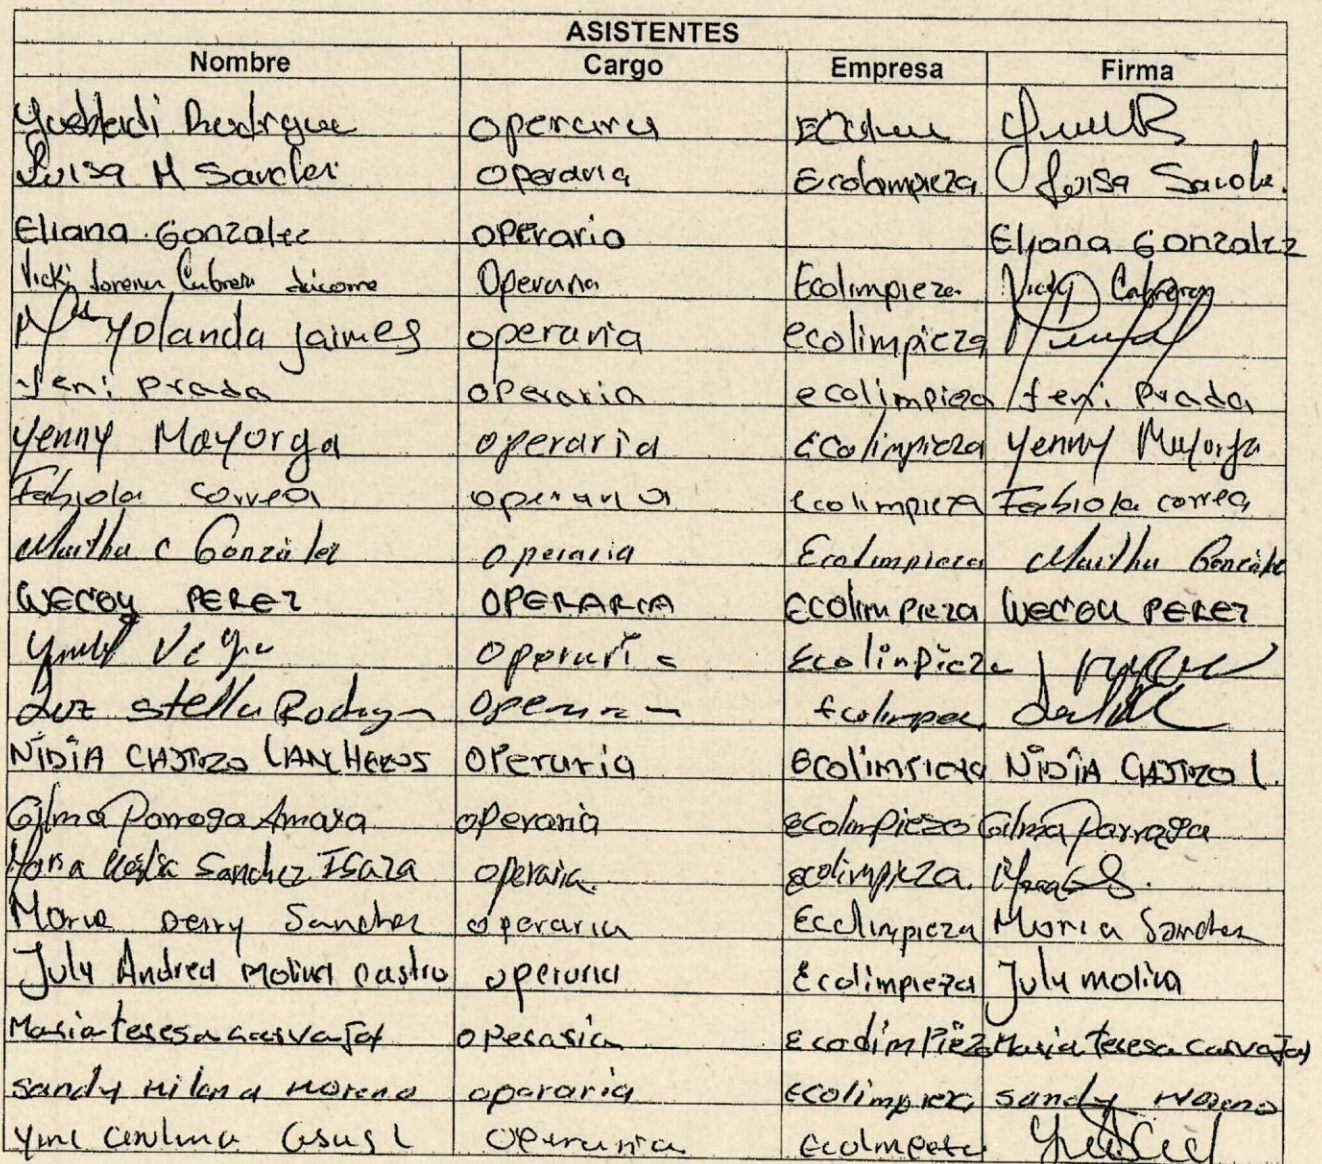 ASISTENTES
Nombre Cargo Empresa Firma
operaria
Luisa M Sanchez operaria Ecolimpieza Luisa
Eliana Gonzalez operario Eliana Gonzalez
Vicki Lorena Cabrera Operaria Ecolimpieza Vicky Cabrera
Yolanda Jaimes operaria ecolimpieza
Jeni Prada operaria ecolimpieza Jeni Prada
Yenny Mayorga operaria Ecolimpieza Yenny Mayorga
Fabiola correa operaria Ecolimpieza Fabiola correa
Martha c González operaria Ecolimpieza Martha González
PEREZ OPERARIA Ecolimpieza PEREZ
Vega operaria Ecolinpieza
Luz stella
NIDIA CASTRO LANCHEROS operaria NIDIA CASTRO L.
Gilma Parraga Amaya operaria ecolimpieza Gilma Parraga
Sanchez Isaza operaria. ecolimpieza.
Maria Derry Sanchez operaria Ecolimpieza Maria Sanchez
July Andrea Molina castro operaria Ecolimpieza July molina
Maria teresa carvajal operaria Maria teresa carvajal
sandy milena moreno opararia sandy moreno
operaria